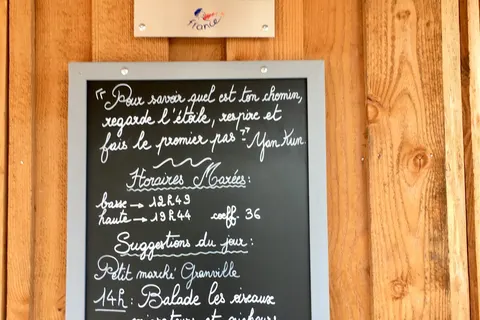 France
"Pour savoir quel est ton chemin,
regarde l'étoile, respire et
fais le premier pas" Yan Kun
Horaires Marées:
basse → 12h49
haute → 19h44 coeff. 36
Suggestions du jour:
Petit marché Granville
14h: Balade les oiseaux